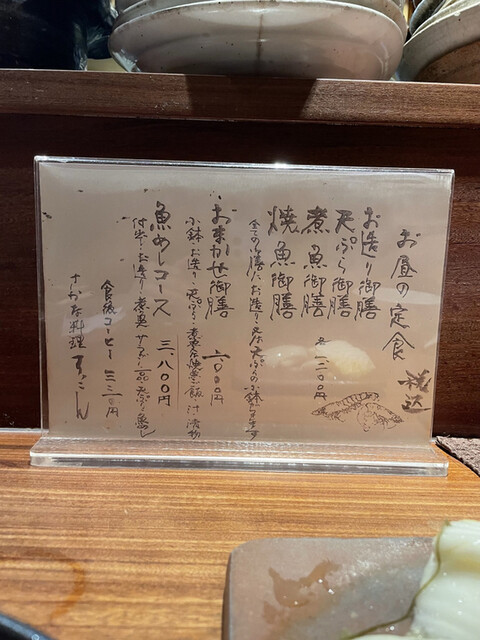 お昼の定食 税込
お造り御膳
天ぷら御膳
煮魚御膳 各一二〇〇円
焼魚御膳
全ての膳にお造り又は天ぷらの小鉢がつきます
おまかせ御膳 二〇〇〇円
小鉢・お造り・天ぷら・煮魚又は焼魚・ご飯・汁・漬物
魚めしコース 三、八〇〇円
付出し・お造り・煮魚・サラダ・一品・天ぷら・魚めし
食後コーヒー 三三〇円
さかな料理